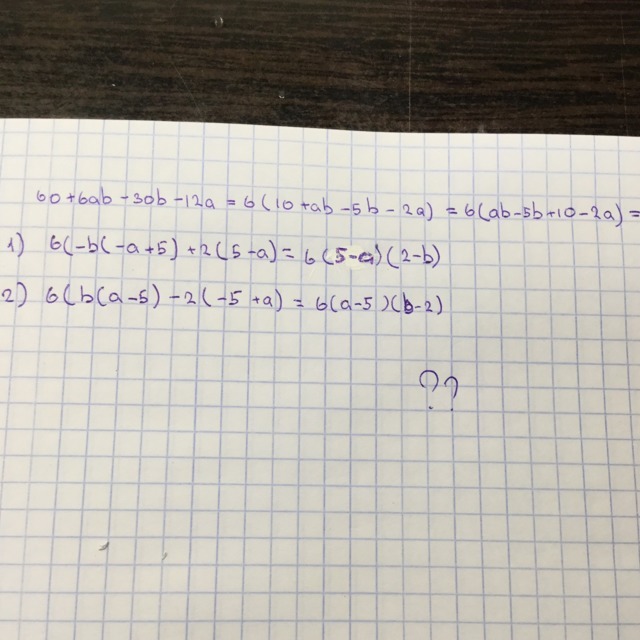 60+6ab-30b-12a = 6(10+ab-5b-2a) = 6(ab-5b+10-2a) =
1) 6(-b(-a+5)+2(5-a) = 6(5-a)(2-b)
2) 6(b(a-5)-2(-5+a) = 6(a-5)(b-2)
??